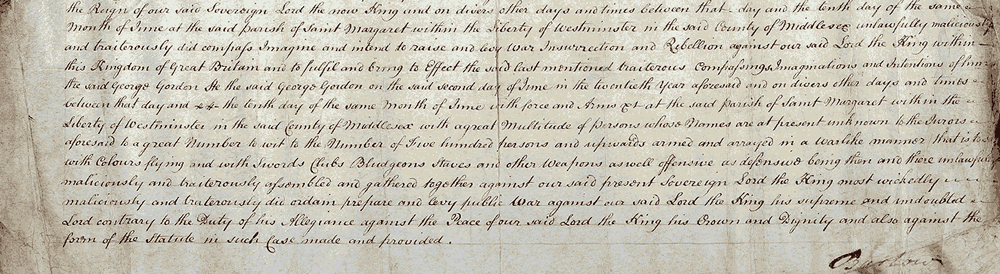 the Reign of our said Sovereign Lord the now King and on divers other days and times between that day and the tenth day of the same
Month of June at the said Parish of Saint Margaret within the Liberty of Westminster in the said County of Middlesex unlawfully maliciously
and traiterously did compass Imagine and intend to raise and levy War Insurrection and Rebellion against our said Lord the King within
this Kingdom of Great Britain and to fulfil and bring to Effect the said last mentioned traiterous Compassings Imaginations and Intentions of him
the said George Gordon He the said George Gordon on the said second day of June in the twentieth Year aforesaid and on divers other days and times
between that day and the tenth day of the same Month of June with force and Arms &c at the said Parish of Saint Margaret within the
Liberty of Westminster in the said County of Middlesex with a great Multitude of Persons whose Names are at present unknown to the Jurors
aforesaid to a great Number to wit to the Number of Five hundred persons and upwards armed and arrayed in a warlike manner that is to say
with Colours flying and with Swords Clubs Bludgeons Staves and other Weapons as well offensive as defensive being then and there unlawfully
maliciously and traiterously assembled and gathered together against our said present Sovereign Lord the King most wickedly
maliciously and traiterously did ordain prepare and levy public War against our said Lord the King his supreme and undoubted
Lord contrary to the Duty of his Allegiance against the Peace of our said Lord the King his Crown and Dignity and also against the
form of the Statute in such Case made and provided.
Barlow